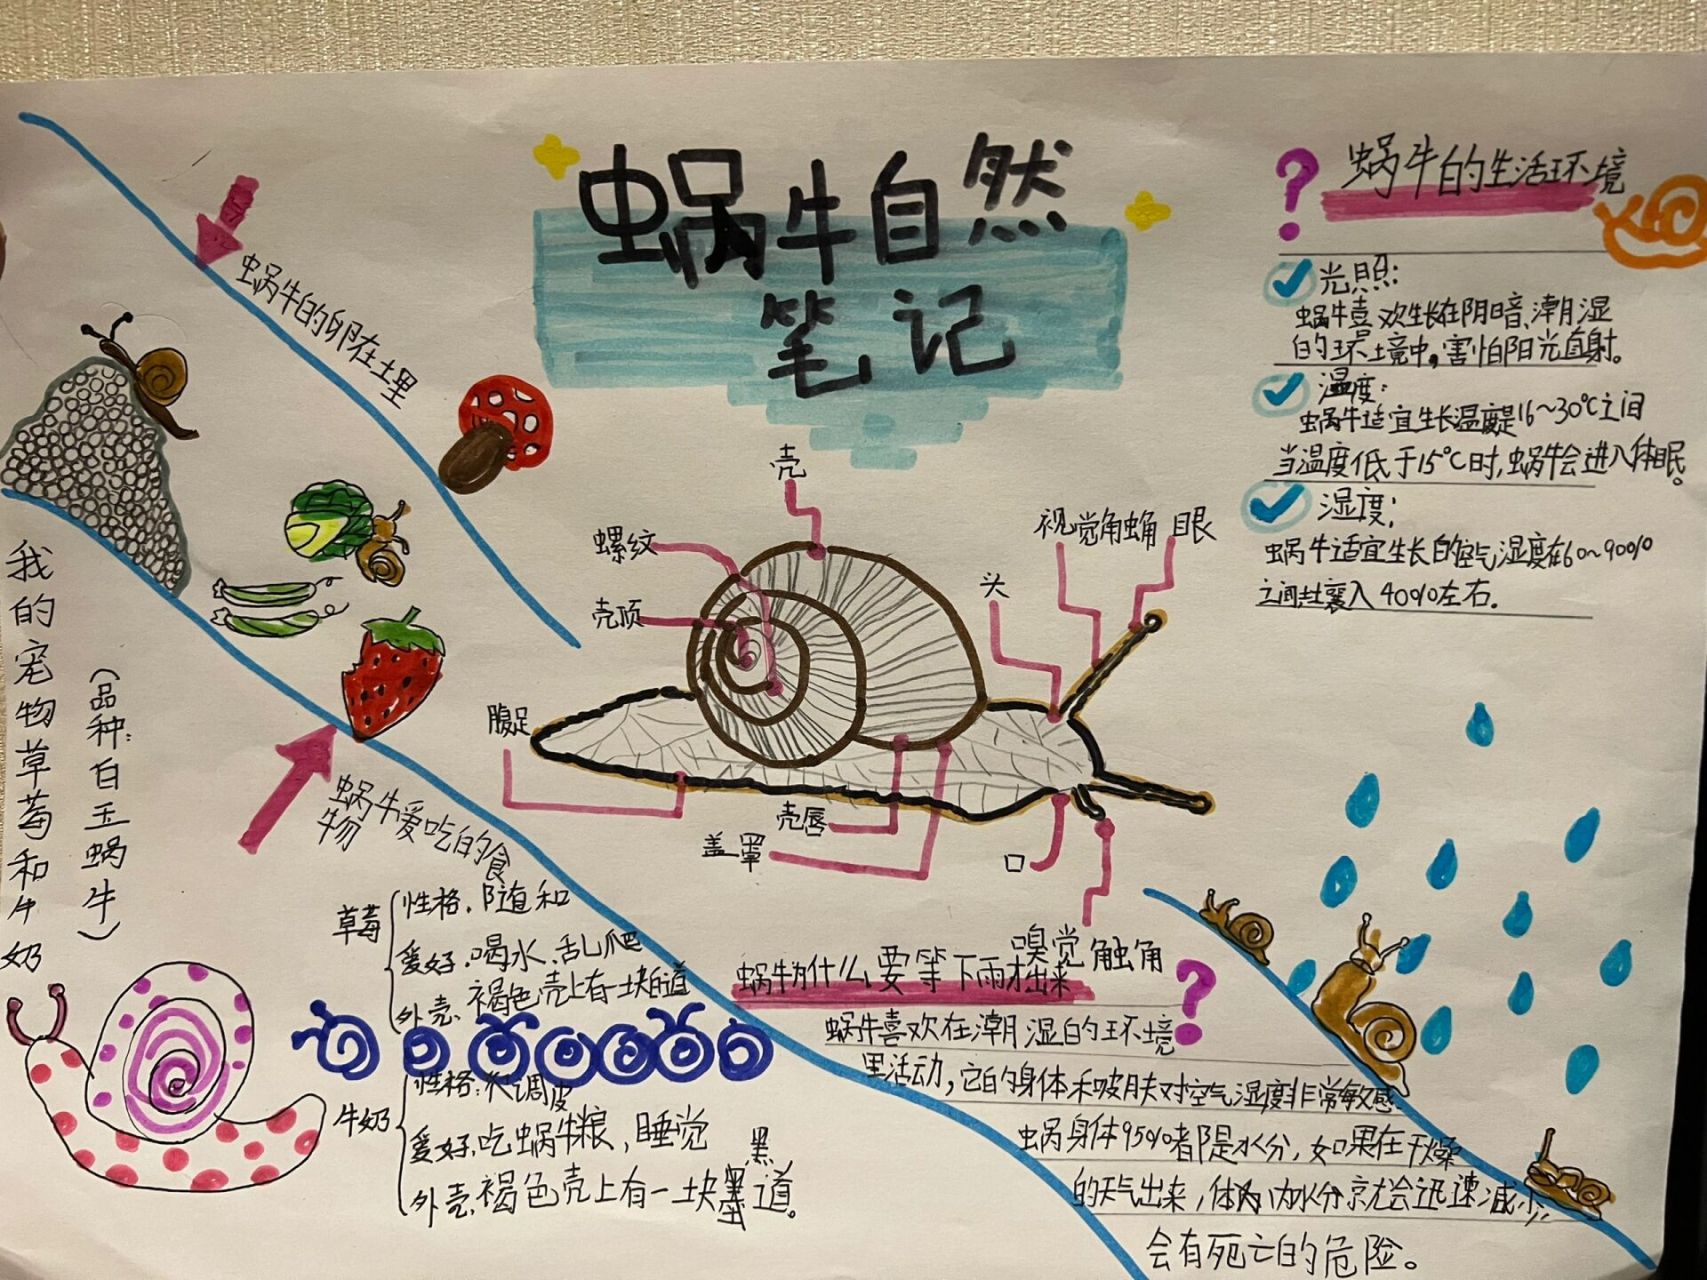 蜗牛自然
笔记
蜗牛的卵在土里
蜗牛的生活环境
光照:
蜗牛喜欢生长在阴暗、潮湿
的环境中,害怕阳光直射。
温度:
蜗牛适宜生长温度是16~30℃之间
当温度低于15℃时,蜗牛会进入休眠。
湿度:
蜗牛适宜生长的空气湿度在60~90%
之间土襄入40%左右.
壳
螺纹
壳顶
腹足
头
视觉角虫角
眼
壳唇
盖罩
口
嗅觉触角
我的宠物草莓和牛奶
(品种:白玉蜗牛)
蜗牛爱吃的食
物
草莓
性格.随和
爱好.喝水、乱爬
外壳.褐色壳上有一块白道
牛奶
性格:调皮
爱好.吃蜗牛粮,睡觉
外壳.褐色壳上有一块黑道。
蜗牛为什么要等下雨才出来
蜗牛喜欢在潮湿的环境
里活动,它的身体和皮肤对空气湿度非常敏感
蜗身体95%都是水分,如果在干燥
的天气出来,体内水分就会迅速减少,
会有死亡的危险。